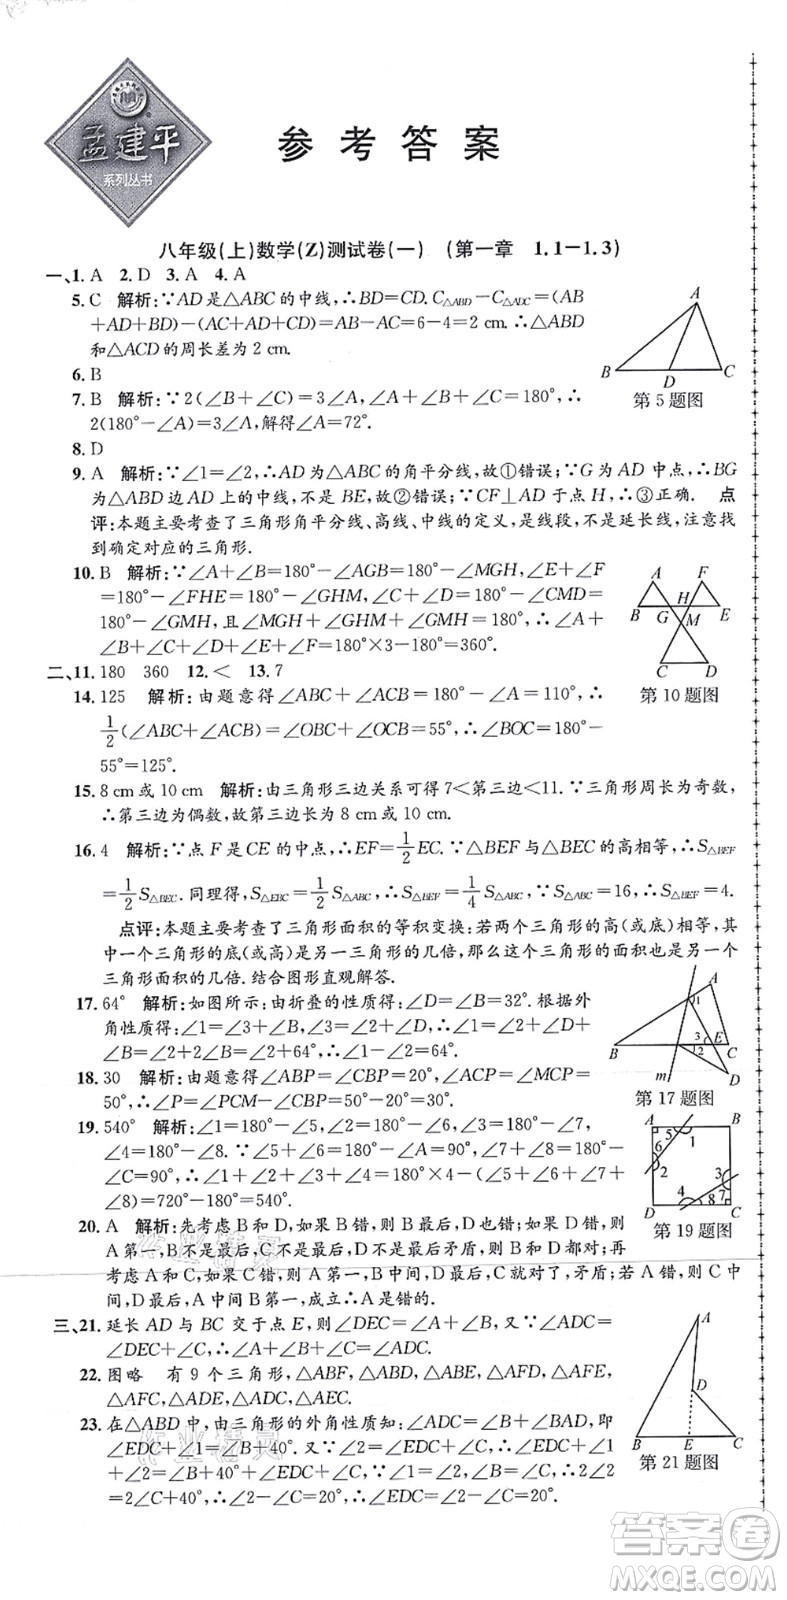 孟建平
系列丛书
参考答案
八年级(上)数学(Z)测试卷(一) (第一章 1.1－1.3)
一、1. A 2. D 3. A 4. A
5. C 解析:∵AD是△ABC的中线,∴BD=CD. C△ABD－C△ADC=(AB
+AD+BD)-(AC+AD+CD)=AB-AC=6-4=2 cm. ∴△ABD
和△ACD的周长差为2 cm.
6. B
7. B 解析:∵2(∠B+∠C)=3∠A,∠A+∠B+∠C=180°,∴
2(180°-∠A)=3∠A,解得∠A=72°.
8. D
9. A 解析:∵∠1=∠2,∴AD为△ABC的角平分线,故①错误;∵G为AD中点,∴BG
为△ABD边AD上的中线,不是BE,故②错误;∵CF⊥AD于点H,∴③正确. 点
评:本题主要考查了三角形角平分线、高线、中线的定义,是线段,不是延长线,注意找
到确定对应的三角形.
10. B 解析:∵∠A+∠B=180°-∠AGB=180°-∠MGH,∠E+∠F
=180°-∠FHE=180°-∠GHM,∠C+∠D=180°-∠CMD=
180°-∠GMH,且∠MGH+∠GHM+∠GMH=180°,∴∠A+
∠B+∠C+∠D+∠E+∠F=180°×3-180°=360°.
二、11. 180 360 12. < 13. 7
14. 125 解析:由题意得∠ABC+∠ACB=180°-∠A=110°,∴
1/2(∠ABC+∠ACB)=∠OBC+∠OCB=55°,∴∠BOC=180°-
55°=125°.
15. 8 cm或10 cm 解析:由三角形三边关系可得7<第三边<11. ∵三角形周长为奇数,
∴第三边为偶数,故第三边长为8 cm或10 cm.
16. 4 解析:∵点F是CE的中点,∴EF=1/2EC. ∵△BEF与△BEC的高相等,∴S△BEF
=1/2S△BEC. 同理得,S△EBC=1/2S△ABC,∴S△BEF=1/4S△ABC,∵S△ABC=16,∴S△BEF=4.
点评:本题主要考查了三角形面积的等积变换:若两个三角形的高(或底)相等,其
中一个三角形的底(或高)是另一三角形的几倍,那么这个三角形的面积也是另一个
三角形面积的几倍. 结合图形直观解答.
17. 64° 解析:如图所示:由折叠的性质得:∠D=∠B=32°. 根据外
角性质得:∠1=∠3+∠B,∠3=∠2+∠D,∴∠1=∠2+∠D+
∠B=∠2+2∠B=∠2+64°,∴∠1-∠2=64°.
18. 30 解析:由题意得∠ABP=∠CBP=20°,∠ACP=∠MCP=
50°,∴∠P=∠PCM-∠CBP=50°-20°=30°.
19. 540° 解析:∠1=180°-∠5,∠2=180°-∠6,∠3=180°-∠7,
∠4=180°-∠8. ∵∠5+∠6=180°-90°=90°,∠7+∠8=180°-
90°=90°,∴∠1+∠2+∠3+∠4=180°×4-(∠5+∠6+∠7+
∠8)=720°-180°=540°.
20. A 解析:先考虑B和D,如果B错,则D不是最小,A不是最大,则
A第一,B不是最后,D不是最小,则D第二,A和D都对;再
考虑A和C,如果C错,则A第一,B第一矛盾;若A错,则C中
间,D最小,A中间B第一,成立∴A是错的.
三、21. 延长AD与BC交于点E,则∠DEC=∠A+∠B,又∵∠ADC=
∠DEC+∠C,∴∠ADC=∠A+∠B+∠C.
22. 图略 有9个三角形,△ABF,△ABD,△ABE,△ABC,
△AFC,△ADE,△ADC,△AEC.
23. 在△ABD中,由三角形的外角性质知:∠ADC=∠B+∠BAD,即
∠EDC+∠1=∠B+40°①,同理得:∠2=∠EDC+∠C. ∵∠1=
∠2,∠B=∠C,∴∠2=∠EDC+∠B②,②代入①得:2∠EDC+
∠B=∠B+40°,即∠EDC=20°.
第5题图
第10题图
第17题图
第19题图
第21题图
作业精灵
作业精灵
答案卷
MXQE.COM